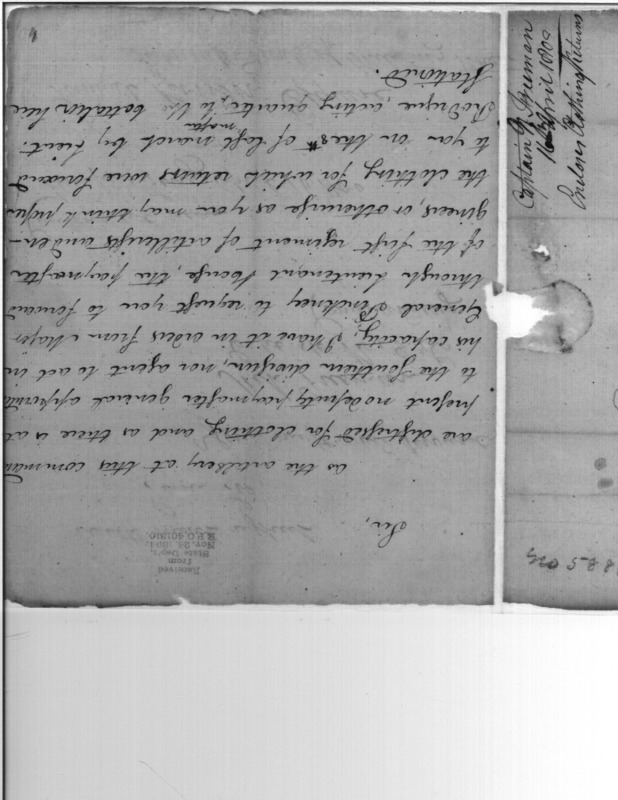 Sir,
as the artillery at this comman
are distressed for clothing and as there is at
present no deputy paymaster general appointe
to the southern division, nor agent to act in
his capacity, I have it in orders from Major
General Pinckney to request you to forward
through Lieutenant House, the paymaster
of the first regiment of artillerists and en-
gineers, or otherwise as you may think proper
the clothing for which returns were forward
to you on the of last march by Lieut.
acting quarter master to the battalion here
Stationed.
Received
from
State Dep't.
Nov. 1894
R.P.O. 401310
Captain Freeman
April 1800
Encloses Clothing Returns